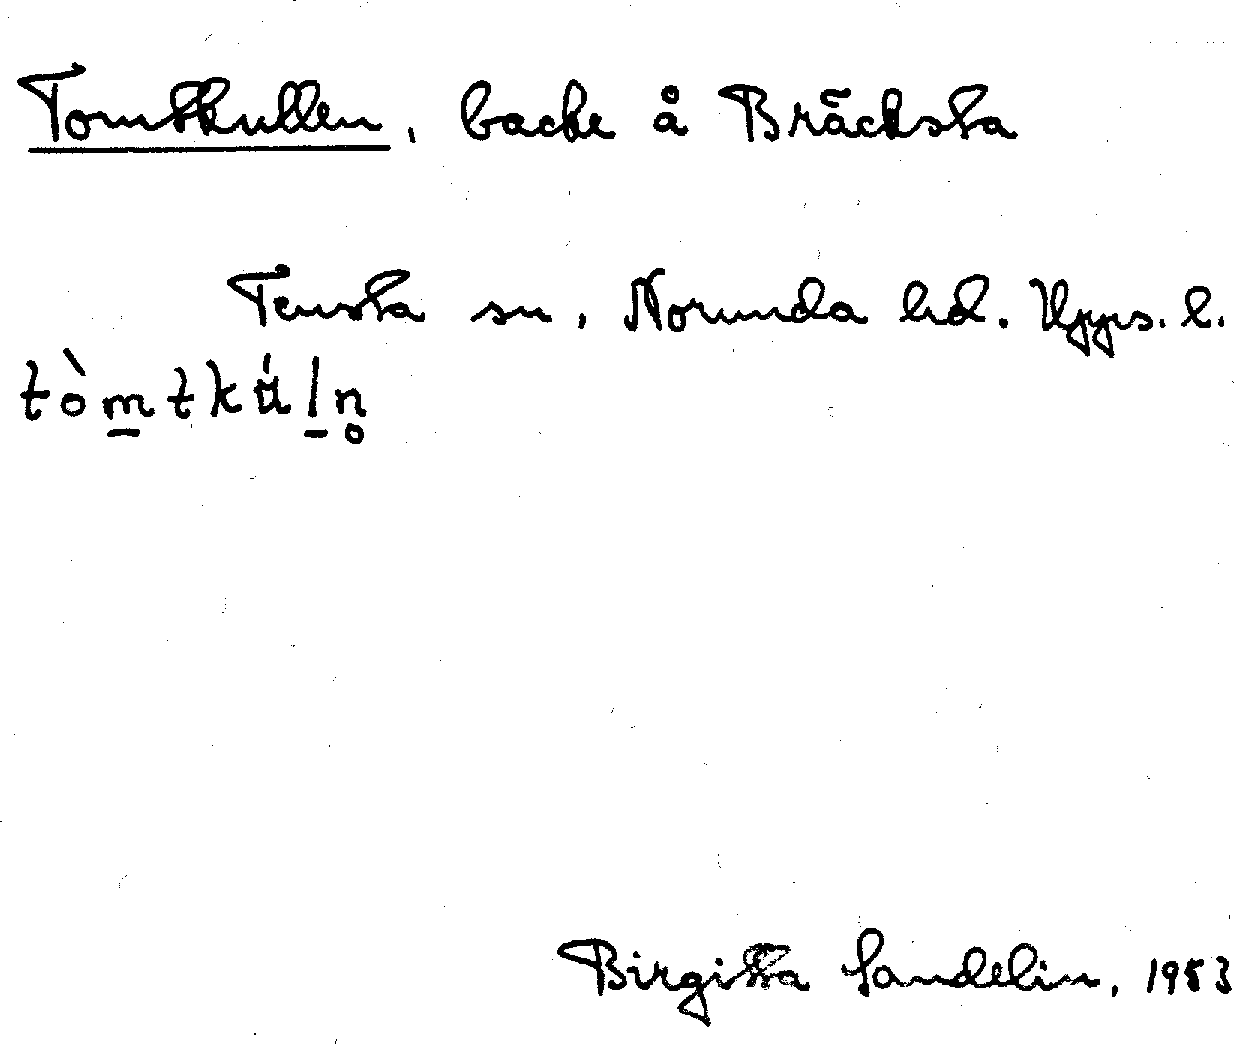 Tomtkullen, backe å Bräcksta
Tensta sn, Norunda hd. Upps. l.
tòm̲tkú̈l̲n̥
Birgitta Sandelin, 1953